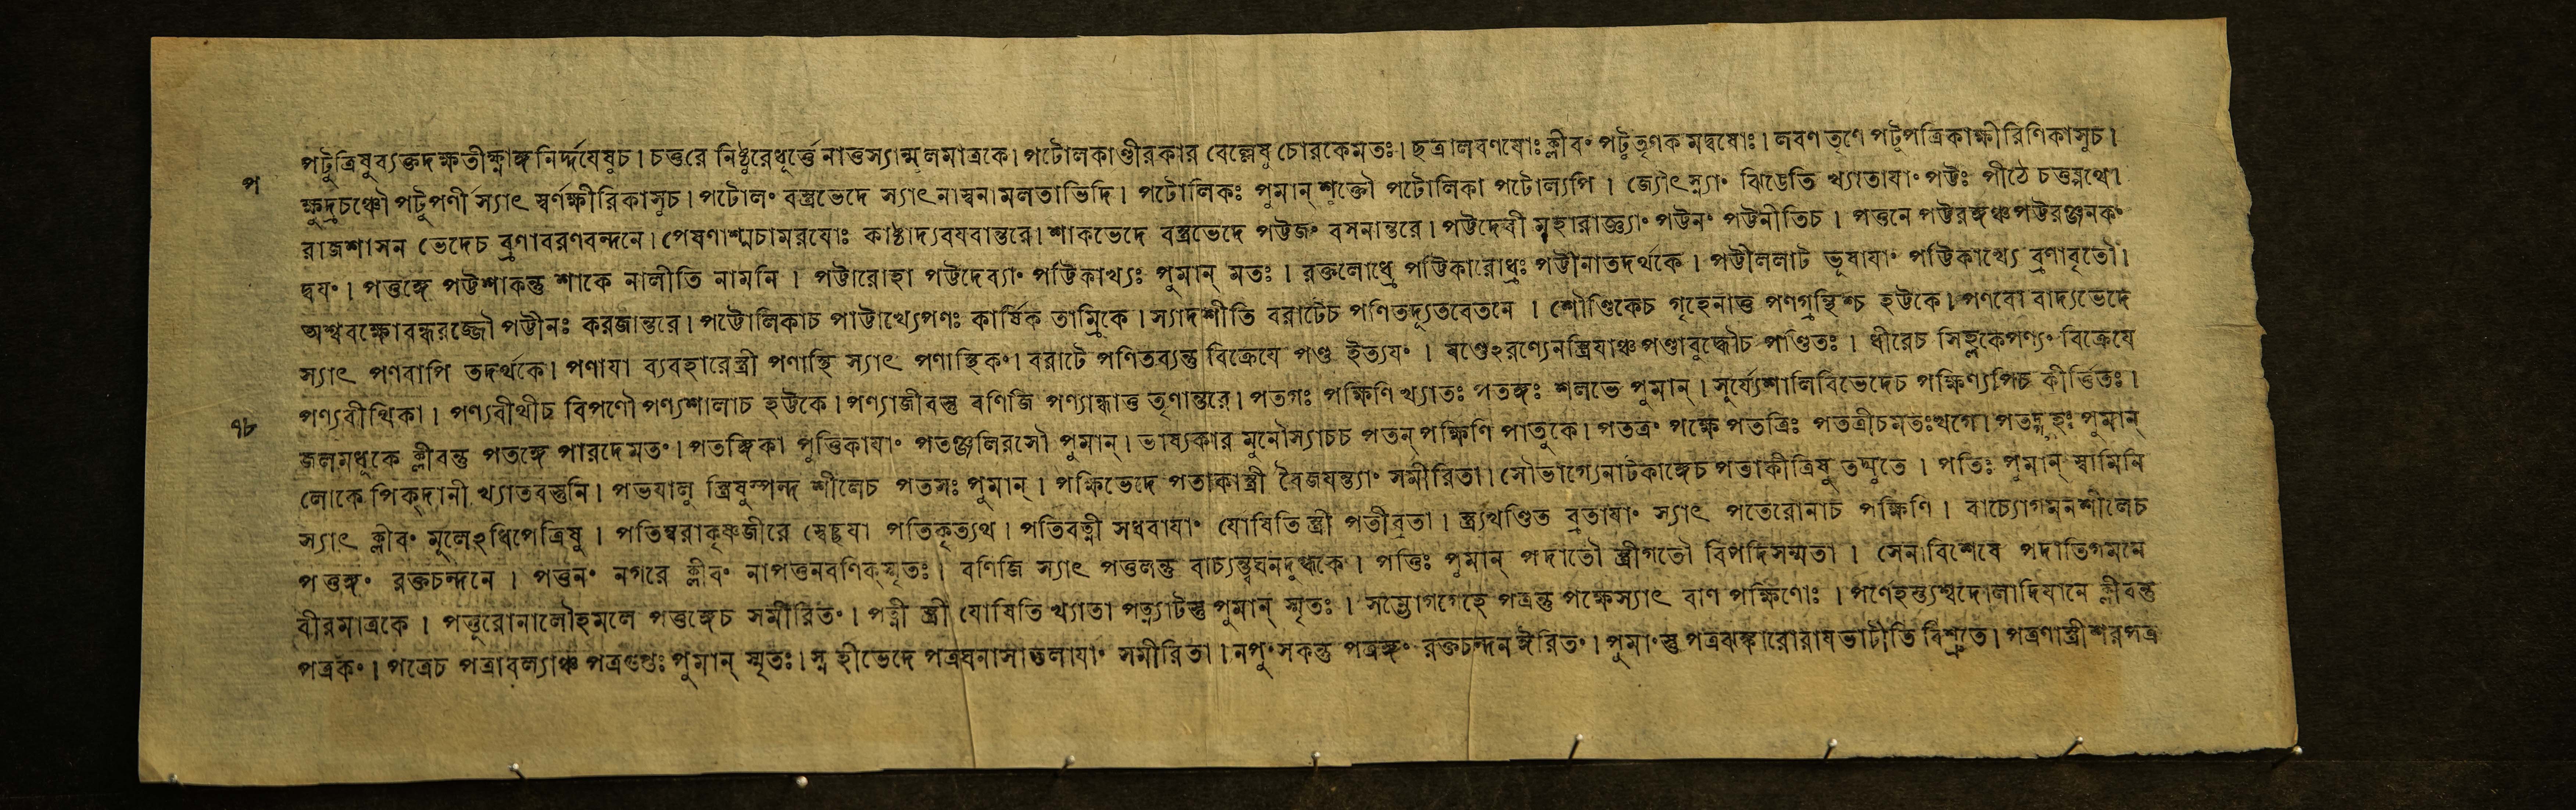 পটুত্রিষুব্যক্তদক্ষতীক্ষ্ণাঙ্গনির্দ্দযেষুচ। চত্তরে নিষ্ঠুরেধূর্ত্তে নাত্তস্যান্মূলমাত্রকে। পটোলকাণ্ডীরকার বেল্লেষু চোরকেমতঃ। ছত্রালবণযোঃ ক্লীবং পটুতৃণক মদ্বযোঃ। লবণ তৃণে পটুপত্রিকাক্ষীরিণিকাসুচ।
প
ক্ষুদ্রচঞ্চৌ পটুপর্ণী স্যাৎ স্বর্ণক্ষীরিকাসুচ। পটোলং বস্ত্রভেদে স্যাৎ নাস্বনামলতাভিদি। পটোলিকঃ পুমান্ শুক্তৌ পটোলিকা পটোল্যপি। জ্যৌৎস্ন্যাং ঝিঙেতি খ্যাতাযাং পট্টঃ পীঠে চত্তষ্পথে।
রাজশাসন ভেদেচ ব্রণাবরণবন্দনে। পেষণাশ্মচামরযোঃ কাষ্ঠাদ্যবযবান্তরে। শাকভেদে বস্ত্রভেদে পট্টজং বসনান্তরে। পট্টদেবী মহারাজ্ঞ্যাং পট্টনং পট্টনীতিচ। পত্তনে পট্টরঙ্গঞ্চ পট্টরঞ্জনকং
দ্বযং। পত্তঙ্গে পট্টশাকন্তু শাকে নালীতি নামনি। পট্টারোহা পট্টদেব্যাং পট্টিকাখ্যঃ পুমান্ মতঃ। রক্তলোধ্রে পট্টিকারোধ্রঃ পট্টীনাতদর্থকে। পট্টীললাট ভূষাযাং পট্টিকাখ্যে ব্রণাবৃতৌ।
অশ্ববক্ষোবন্ধরজ্জৌ পট্টীনঃ করজান্তরে। পট্টোলিকাচ পাট্টাখ্যেপণঃ কার্ষিক তাম্রিকে। স্যাদশীতি বরাটেচ পণিতদ্যূতবেতনে। শৌণ্ডিকেচ গৃহেনাত্ত পণগ্রন্থিশ্চ হট্টকে। পণবো বাদ্যভেদে
স্যাৎ পণবাপি তদর্থকে। পণাযা ব্যবহারেস্ত্রী পণাস্থি স্যাৎ পণাস্থিকং। বরাটে পণিতব্যন্তু বিক্রেযে পণ্ড ইত্যযং। ষণ্ডেঽরণ্যেনস্ত্রিযাঞ্চ পণ্ডাবুদ্ধৌচ পণ্ডিতঃ। ধীরেচ সিহ্লকেপণ্যং বিক্রেযে
পণ্যবীথিকা। পণ্যবীথীচ বিপণৌ পণ্যশালাচ হট্টকে। পণ্যাজীবস্তু বণিজি পণ্যান্ধাত্ত তৃণান্তরে। পতগঃ পক্ষিণি খ্যাতঃ পতঙ্গঃ শলভে পুমান্। সূর্য্যেশালিবিভেদেচ পক্ষিণ্যপিচ কীর্ত্তিতঃ।
৭৮
জলমধূকে ক্লীবন্তু পতঙ্গে পারদেমতং। পতঙ্গিকা পুত্তিকাযাং পতঞ্জলিরসৌ পুমান্। ভাষ্যকার মুনৌস্যাচচ পতন্ পক্ষিণি পাতুকে। পতত্রং পক্ষে পতত্রিঃ পতত্রীচমতঃখগে। পতদ্গ্রহঃ পুমান্
লোকে পিক্‌দানী খ্যাতবস্তুনি। পতযালু স্ত্রিষুস্পন্দ শীলেচ পতসঃ পুমান্। পক্ষিভেদে পতাকাস্ত্রী বৈজযন্ত্যাং সমীরিতা। সৌভাগ্যেনাটকাঙ্গেচ পতাকীত্রিষু তদ্যুতে। পতিঃ পুমান্ স্বামিনি
স্যাৎ ক্লীবং মূলেঽধিপেত্রিষু। পতিম্বরাকৃষ্ণজীরে স্বেচ্ছযা পতিকৃত্যথ। পতিবত্নী সধবাযাং যোষিতি স্ত্রী পতীব্রতা। স্ত্র্যখণ্ডিত ব্রতাযাং স্যাৎ পতেরোনাচ পক্ষিণি। বাচ্যোগমনশীলেচ
পত্তঙ্গং রক্তচন্দনে। পত্তনং নগরে ক্লীবং নাপত্তনবণিকস্মৃতঃ। বণিজি স্যাৎ পত্তলন্তু বাচ্যন্ত্বঘনদুগ্ধকে। পত্তিঃ পুমান্ পদাতৌ স্ত্রীগতৌ বিপদিসম্মতা। সেনাবিশেষে পদাতিগমনে
বীরমাত্রকে। পত্তূরোনালৌহমলে পত্তঙ্গেচ সমীরিতং। পত্নী স্ত্রী যোষিতি খ্যাতা পত্ন্যাটস্তু পুমান্ স্মৃতঃ। সম্ভোগগেহে পত্রন্তু পক্ষেস্যাৎ বাণ পক্ষিণোঃ। পর্ণেহস্ত্যশ্বদোলাদিযানে ক্লীবন্তু
পত্রকং। পত্রেচ পত্রাবল্যাঞ্চ পত্রগুপ্তঃ পুমান্ স্মৃতঃ। স্নুহীভেদে পত্রঘনাসাত্তলাযাং সমীরিতা। নপুংসকন্তু পত্রঙ্গং রক্তচন্দন ঈরিতং। পুমাংস্তু পত্রঝঙ্কারোরাযভাটীতি বিশ্রুতে। পত্রণাস্ত্রীশরপত্র